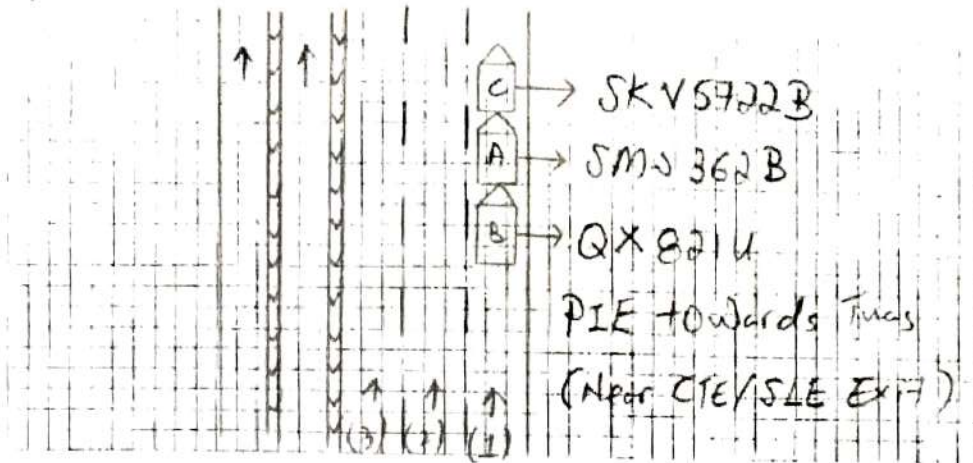 C → SKV5722B
A → SMJ362B
B → QX821U
PIE towards Tuas
(Near CTE/SLE Exit)
(3) (2) (1)